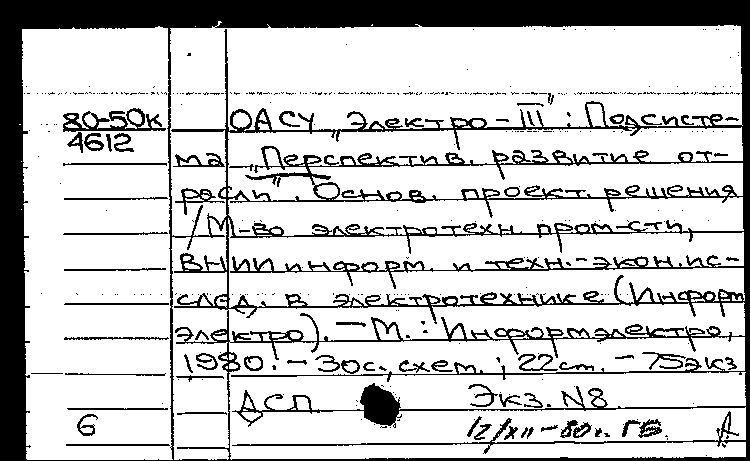 80-50к ОАСУ „Электро-III": Подсисте-
4612
ма „Перспектив. развитие от-
расли". Основ. проект. решения
/М-во электротехн. пром-сти,
ВНИИ информ. и техн.-экон. ис-
след. в электротехнике (Информ
электро). — М.: Информэлектро,
1980. - 30с., схем. ; 22 см. - 75 экз
ДСП Экз. N8
6 12/XII-80г. ГБ.